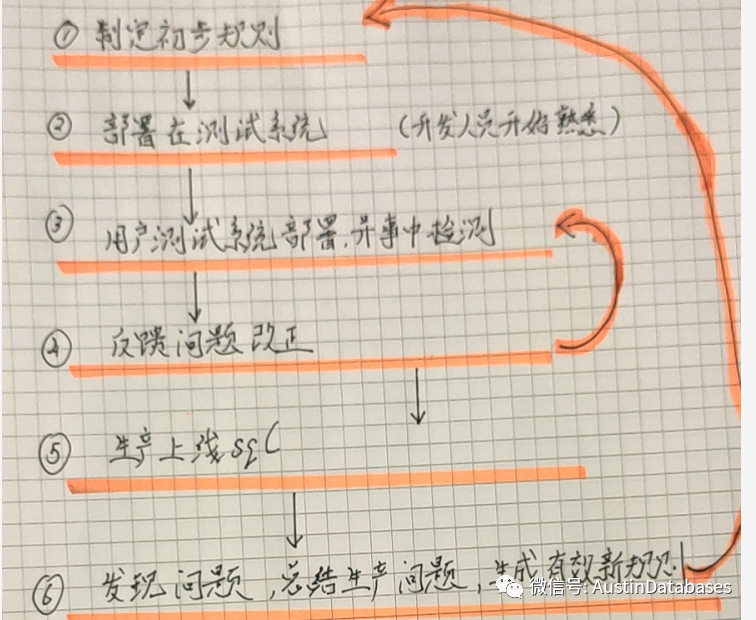 ① 制定初步规则
② 部署在测试系统 (开发人员开始熟悉)
③ 用户测试系统部署,并事中检测
④ 反馈问题改正
⑤ 生产上线sql
⑥ 发现问题,总结生产问题,生成有效新规则
微信号: AustinDatabases